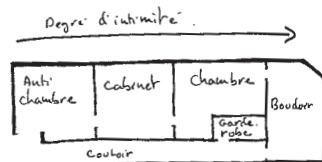 Degré d'intimité.
Anti
chambre
Cabinet
Chambre
Garde.
robe
Boudoir
Couloir